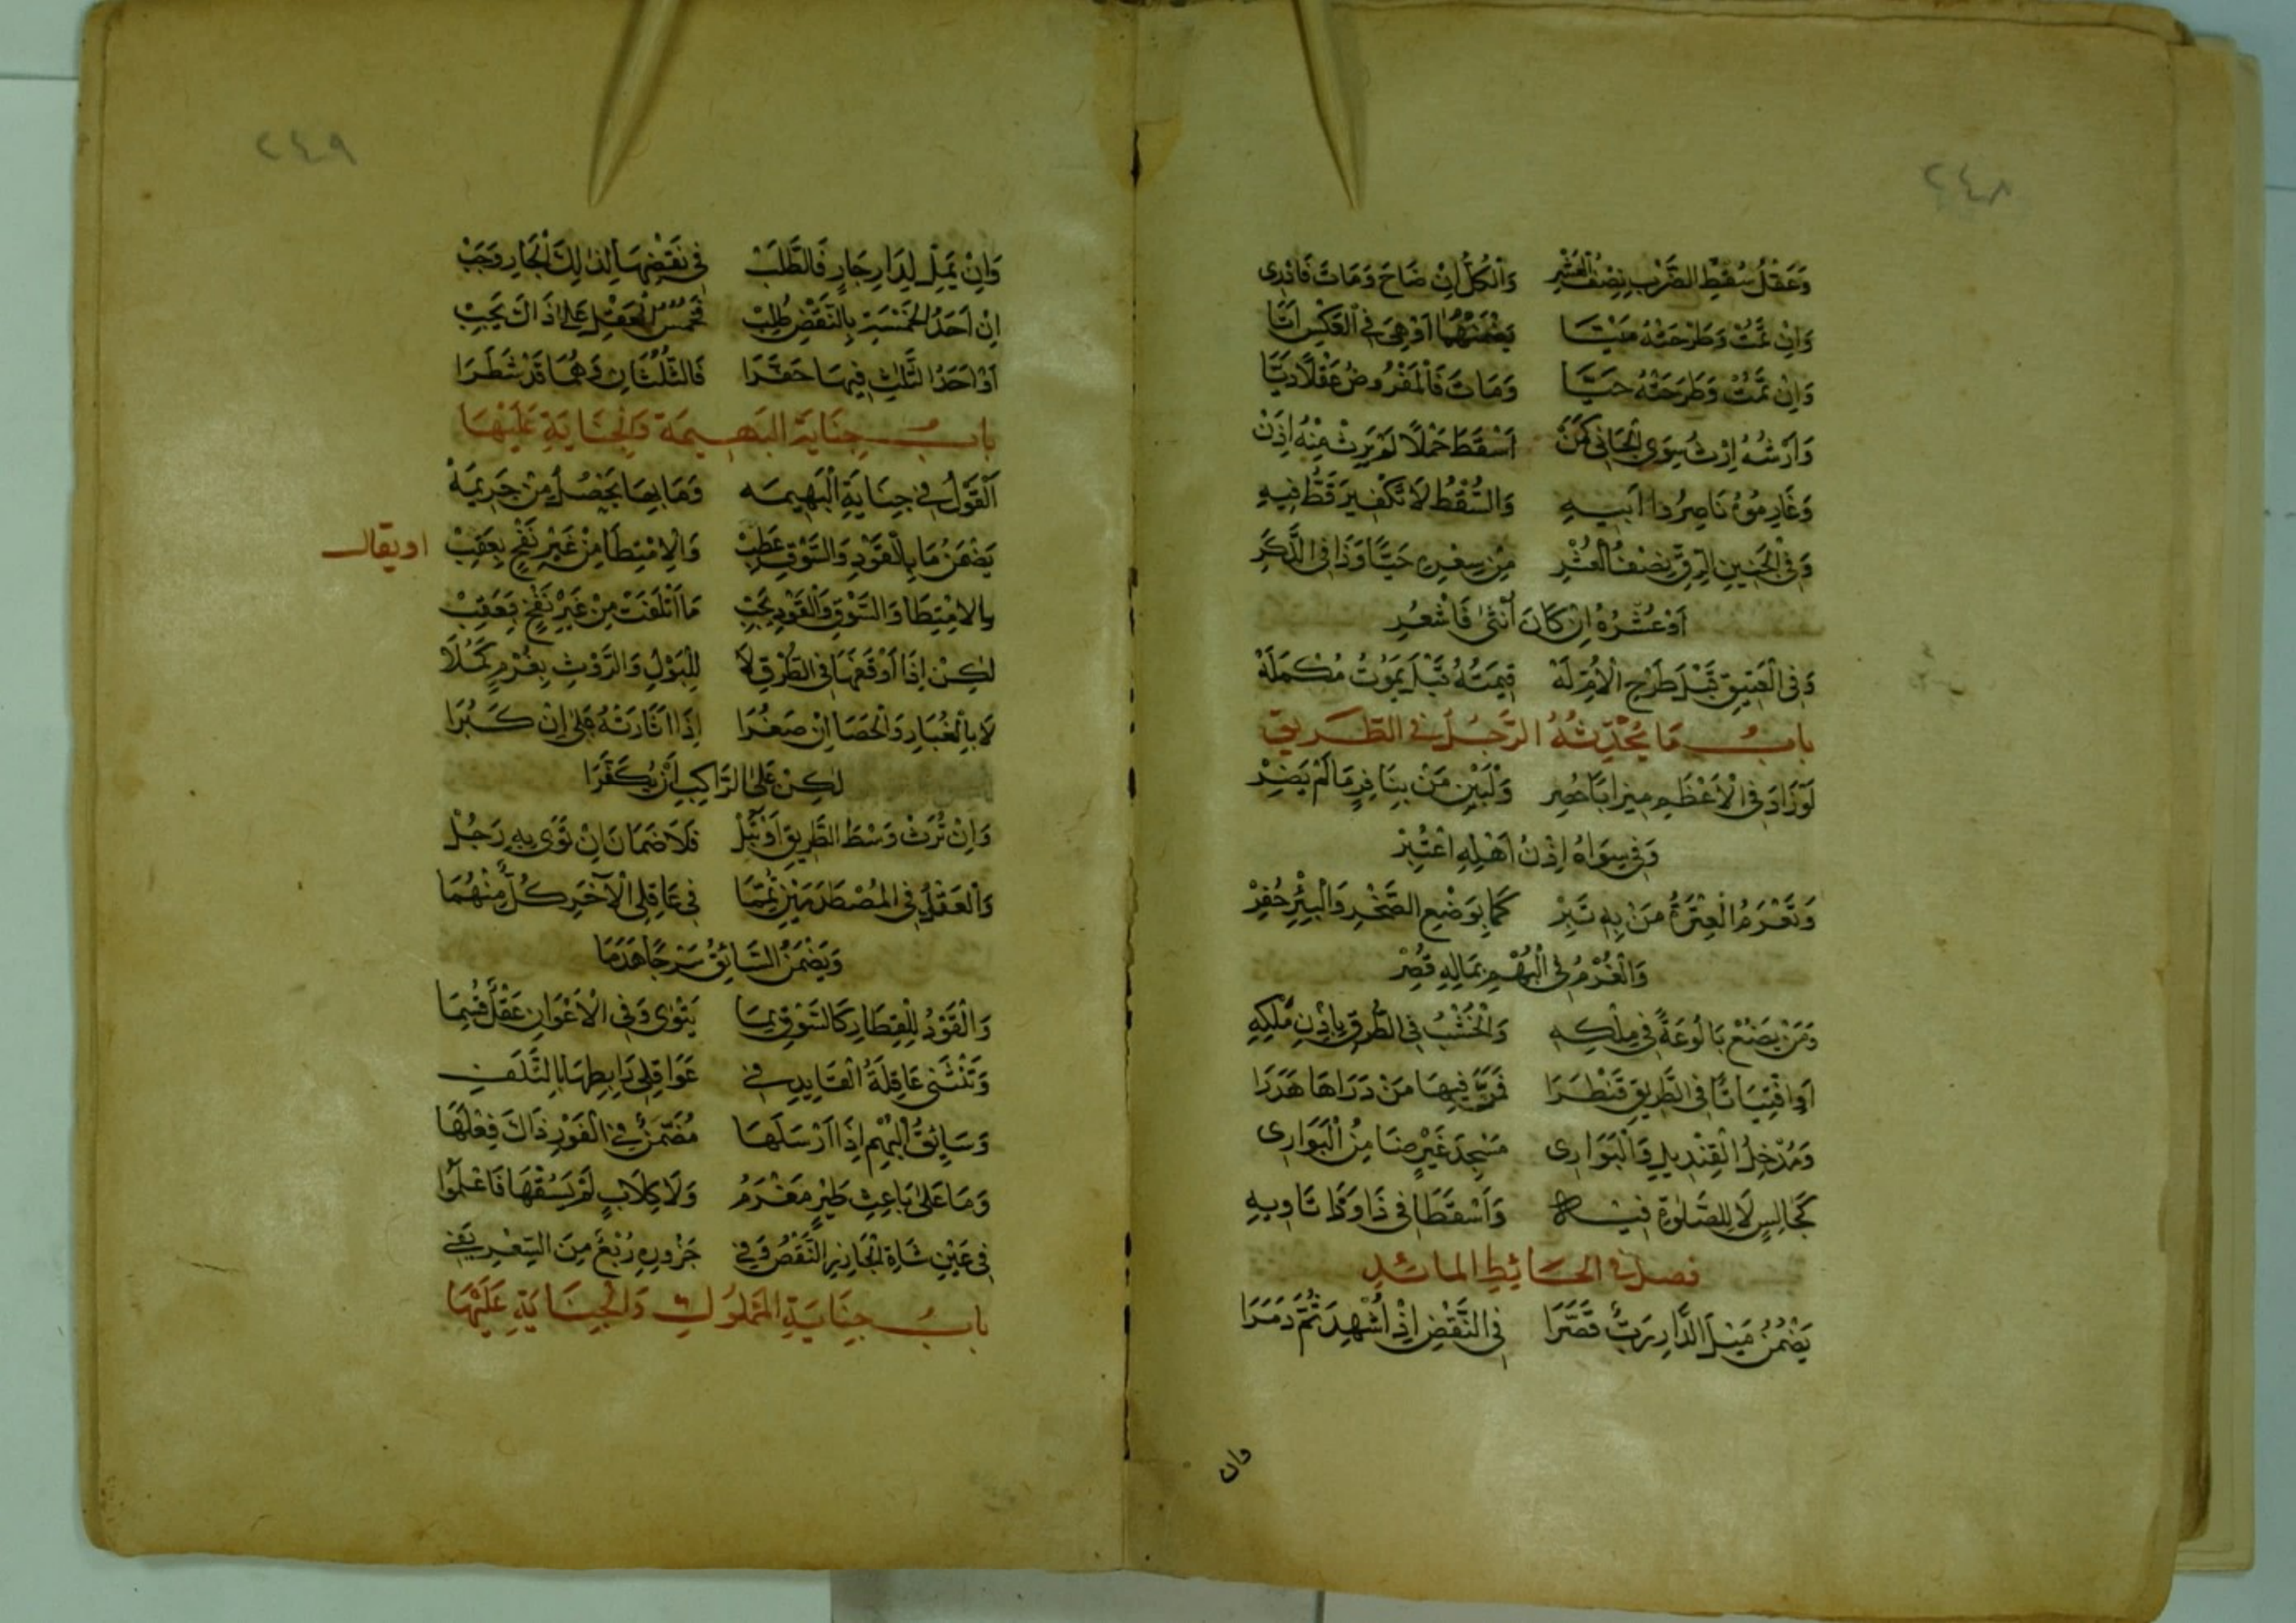 ٢٤٨
وَعَقْلُ سُقْطِ الضَّرْبِ نِصْفُ الْعُشْرِ وَالْكُلُّ اِنْ صَاحَ وَمَاتَ فَادْرِى
وَاِنْ تَمُتْ وَطَرَحَتْهُ مَيْتَا يَضْمَنْهُمَا اَوْ هِىَ فِى الْعَكْسِ اَتَا
وَاِنْ تَمُتْ وَطَرَحَتْهُ حَيَّا وَمَاتَ فَالْمَفْرُوضُ عَقْلًا دِيَّا
وَاَرْشُهُ اِرْثُ سِوَى الْجَانِى كَمَنْ اَسْقَطَ حَمْلًا لَمْ يَرِثْ مِنْهُ اِذَنْ
وَغَارِمُوهُ نَاصِرُوا اَبِيهِ وَالسُّقْطُ لَا تَكْفِيرَ قَطُّ فِيهِ
وَفِى الْجَنِينِ الرِّقِّ نِصْفُ الْعُشْرِ مِنْ سِعْرِهِ حَيًّا وَذَا فِى الذَّكَرِ
اَوْ عُشْرُهُ اِنْ كَانَ اُنْثَى فَاشْعُرِ
وَفِى الْعَتِيقِ قَبْلَ طَرْحِ الْاُمِّ لَهْ قِيمَتُهُ قَبْلَ يَمُوتُ مُكْمَلَهْ
بابُ مَا يُحْدِثُهُ الرَّجُلُ فِى الطَّرِيقِ
لَوْ زَادَ فِى الْاَعْظَمِ مِيزَابًا حُصِر وَلْيَبْنِ مَنْ بِنَافِذٍ مَا لَمْ يَضِرْ
وَفِى سِوَاهُ اِذْنُ اَهْلِهِ اعْتُبِرْ
وَتَغْرَمُ الْعِتْرَةُ مَنْ بِهِ تَبِرْ كَمَا بِوَضْعِ الصَّخْرِ وَالْبِئْرِ حُفِرْ
وَالْغُرْمُ فِى الْبُهْمِ بِمَالِهِ قُصِرْ
وَمَنْ يَصْنَعْ بَالُوعَةً فِى مِلْكِهِ وَالْخَشْبُ فِى الطُّرْقِ بِاِذْنِ مَلْكِهِ
اَوِ افْتِيَاتًا فِى الطَّرِيقِ قَنْطَرَا فَمَرَّ فِيهَا مَنْ دَرَاهَا هَدَرَا
وَمُدْخِلُ الْقِنْدِيلِ وَالْبَوَارِى مَسْجِدَ غَيْرٍ ضَامِنُ الْبَوَارِى
كَجَالِسٍ لَا لِلصَّلٰوةِ فِيهِ وَاَسْقَطَا فِى ذَا وَذَا تَاوِيهِ
فصل فى الحَائِطِ المائلِ
يَضْمُنُ مَيْلَ الدَّارِ رَبٌّ قَصَّرَا فِى النَّقْضِ اِذْ اُشْهِدَ ثُمَّ دَمَرَا
وان
٢٤٩
وَاِنْ يَمِلْ لِدَارِ جَارٍ فَالطَّلَبْ فِى نَقْضِهَا لِذٰلِكَ الْجَارِ وَجَبْ
اِنْ اَحَدُ الْخَمْسَةِ بِالنَّقْضِ طُلِبْ فَخُمْسُ الْعَقْلِ عَلَى ذَاكَ يَجِبْ
اَوْ اَحَدُ الثَّلٰثِ فِيهَا حَفَرَا فَالثُّلُثَانِ وَهُمَا قَدْ شَطَرَا
بابُ جِنَايَةِ البَهِيمَةِ وَالْجِنَايَةِ عَلَيْهَا
اَلْقَوْلُ فِى جِنَايَةِ الْبَهِيمَه وَمَا بِهَا يَحْصُلُ مِنْ جَرِيمَهْ
يَضْمَنُ مَا بِالْقَوْدِ وَالسَّوْقِ عَطِبْ وَالْاِمْتِطَا مِنْ غَيْرِ نَفْحٍ بِعَقِبْ
او يقال
بِالامْتِطَا وَالسَّوْقِ وَالْقَوْدِ يَجِبْ مَا اَتْلَفَتْ مِنْ غَيْرِ نَفْحٍ بِعَقِبْ
لٰكِنْ اِذَا اَوْقَفَهَا فِى الطُّرْقِ لَا لِلْبَوْلِ وَالرَّوْثِ بِغُرْمٍ كَمُلَا
لَا بِالْغُبَارِ وَالْحَصَا اِنْ صَغُرَا اِذَا اَثَارَتْهُ بَلٰى اِنْ كَبُرَا
لٰكِنْ عَلَى الرَّاكِبِ اَنْ يُكَفِّرَا
وَاِنْ تَرُثْ وَسْطَ الطَّرِيقِ اَوْ تَبُلْ فَلَا ضَمَانَ اِنْ تَوَى بِهِ رَجُلْ
وَالْعَقْلُ فِى الْمُصْطَدِمَيْنِ تُمِّمَا فِى عَاقِلِى الْآخَرِ كُلٌّ مِنْهُمَا
وَيَضْمَنُ السَّائِقُ سَرْجًا هَدَمَا
وَالْقَوْدُ لِلْقِطَارِ كَالسَّوْقِ بِمَا يَتْوٰى وَفِى الْاَعْوَانِ عَقْلٌ قُسِمَا
وَتَنْثَنِى عَاقِلَةُ الْقَايِدِ فِى عَوَاقِلِى رَابِطِهَا بِالتَّلَفِ
وَسَايِقُ الْبُهْمِ اِذَا اَرْسَلَهَا مُضَمَّنٌ فِى الْفَوْرِ ذَاكَ فِعْلَهَا
وَمَا عَلَى بَاعِثِ طَيْرٍ مَغْرَمُ وَلَا كِلَابٍ لَمْ يَسُقْهَا فَاعْلَمُوا
فِى عَيْنِ شَاةِ الْجَازِرِ النَّقْصُ وَفِى جَزُورِهِ رُبْعٌ مِنَ السِّعْرِ يَفِى
بابُ جِنَايَةِ المَمْلُوكِ وَالْجِنَايَةِ عَلَيْهَا